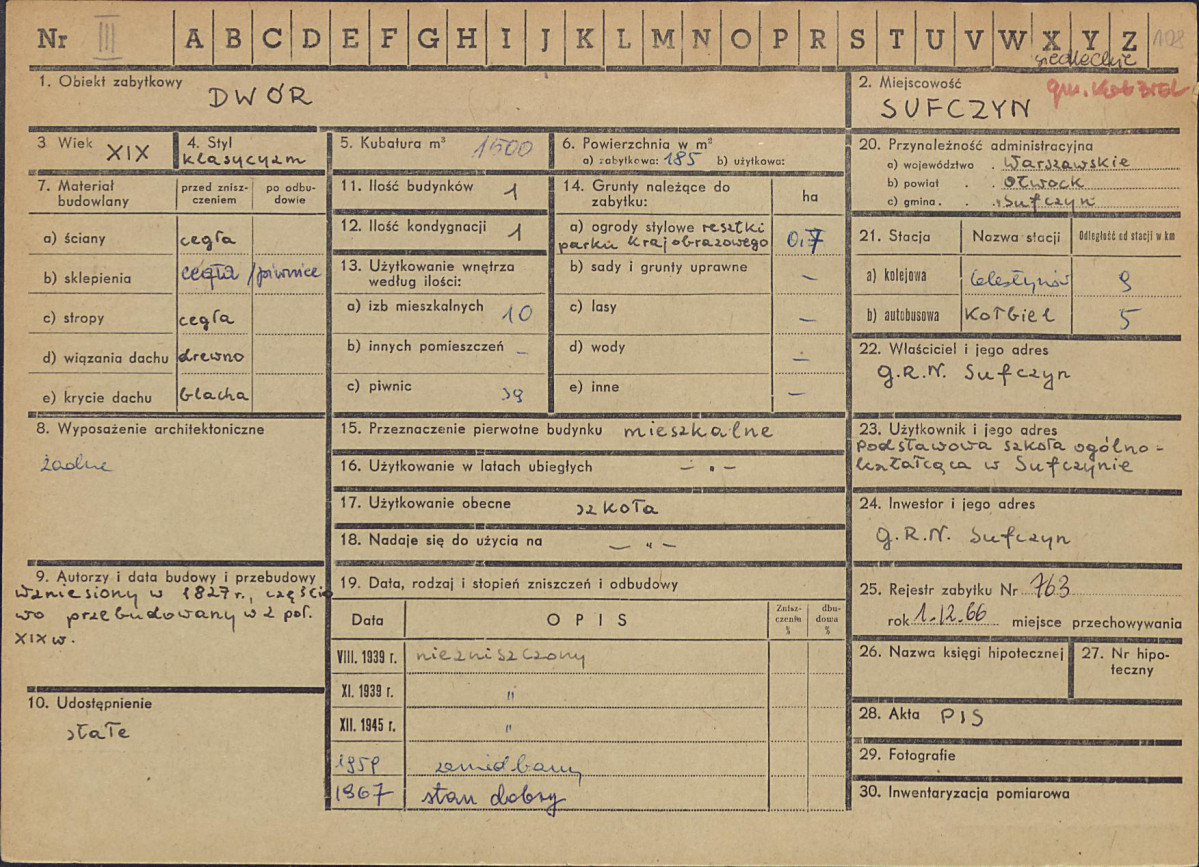 Nr III A B C D E F G H I J K L M N O P R S T U V W X Y Z 108
siedleckie
1. Obiekt zabytkowy
DWÓR
2. Miejscowość
gm. KOŁBIEL
SUFCZYN
3 Wiek XIX
4. Styl
klasycyzm
5. Kubatura m³ 1500
6. Powierzchnia w m²
a) zabytkowa: 185 b) użytkowa:
7. Materiał budowlany
przed zniszczeniem
po odbudowie
a) ściany cegła
b) sklepienia cegła /piwnice
c) stropy cegła
d) wiązania dachu drewno
e) krycie dachu blacha
8. Wyposażenie architektoniczne
żadne
9. Autorzy i data budowy i przebudowy
wzniesiony w 1827 r., częścio
wo przebudowany w 2 poł.
XIX w.
10. Udostępnienie
stałe
11. Ilość budynków 1
12. Ilość kondygnacji 1
13. Użytkowanie wnętrza
według ilości:
a) izb mieszkalnych 10
b) innych pomieszczeń –
c) piwnic
14. Grunty należące do
zabytku:
ha
a) ogrody stylowe resztki
parku krajobrazowego 0,7
b) sady i grunty uprawne –
c) lasy –
d) wody –
e) inne –
15. Przeznaczenie pierwotne budynku mieszkalne
16. Użytkowanie w latach ubiegłych – " –
17. Użytkowanie obecne szkoła
18. Nadaje się do użycia na – " –
19. Data, rodzaj i stopień zniszczeń i odbudowy
Data
OPIS
Zniszczenia %
dbudowa %
VIII. 1939 r. niezniszczony
XI. 1939 r. "
XII. 1945 r. "
1959 zaniedbany
1967 stan dobry
20. Przynależność administracyjna
a) województwo . Warszawskie
b) powiat . . Otwock
c) gmina . . Sufczyn
21. Stacja
Nazwa stacji
Odległość od stacji w km
a) kolejowa Celestynów 9
b) autobusowa Kołbiel 5
22. Właściciel i jego adres
G.R.N. Sufczyn
23. Użytkownik i jego adres
Podstawowa szkoła ogólno-
kształcąca w Sufczynie
24. Inwestor i jego adres
G.R.N. Sufczyn
25. Rejestr zabytku Nr 763
rok 1.12.66 miejsce przechowywania
26. Nazwa księgi hipotecznej
27. Nr hipo-
teczny
28. Akta PIS
29. Fotografie
30. Inwentaryzacja pomiarowa